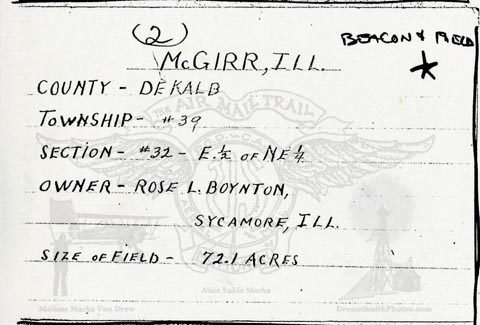 (2)
BEACON & FIELD
McGIRR, ILL.
COUNTY - DEKALB
TOWNSHIP - #39
SECTION - #32 - E. ½ OF NE ¼
OWNER - ROSE L. BOYNTON,
SYCAMORE, ILL.
SIZE OF FIELD - 72.1 ACRES
THE AIR MAIL TRAIL
Alice Eakle Marks
Melissa Marks Van Drew
DreamSmithPhotos.com